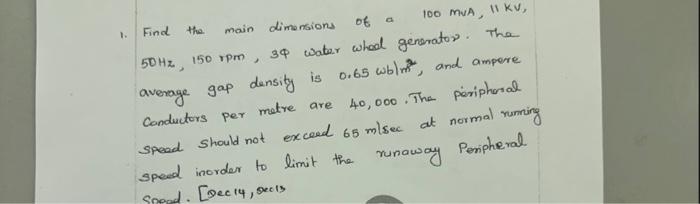 1. Find the main dimensions of a 100 MVA, 11 KV,
50HZ, 150 rpm, 3Φ water wheel generator. The
average gap density is 0.65 wb/m², and ampere
Conductors per metre are 40,000. The peripheral
speed should not exceed 65 m/sec at normal running
speed inorder to limit the runaway Peripheral
Speed. [Dec 14, Dec 13